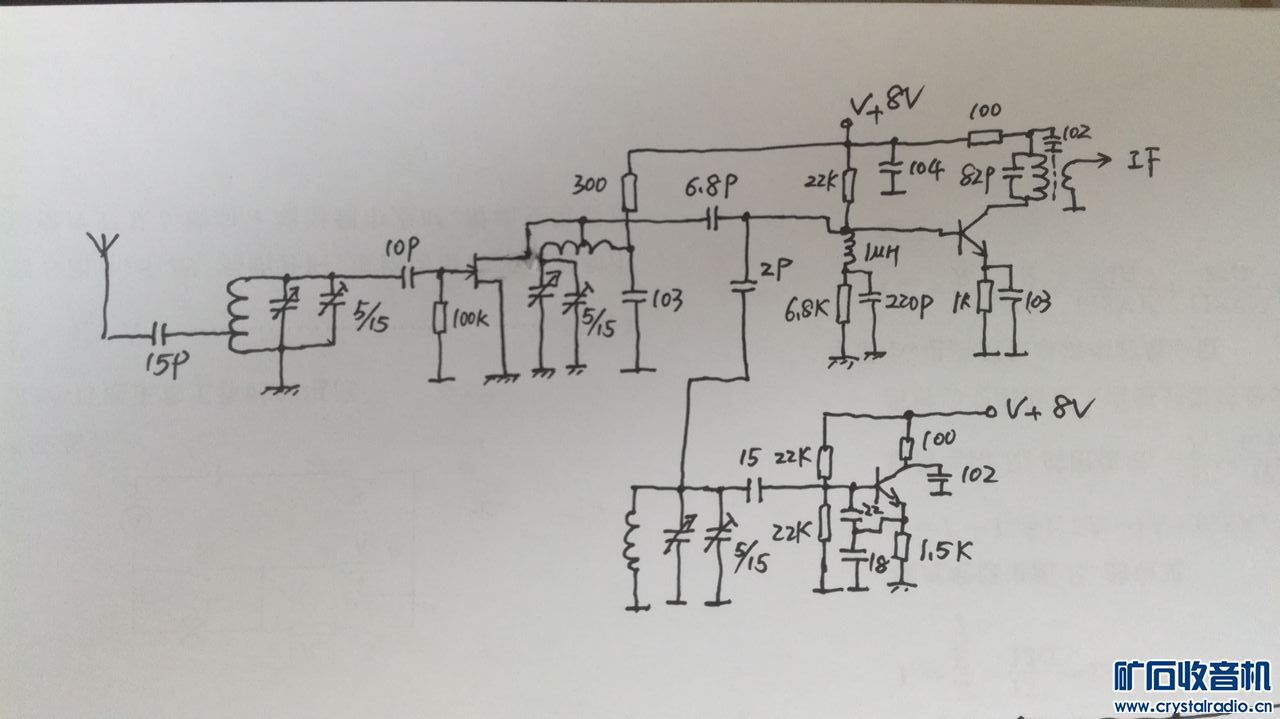 V+ 8V
100
102
300
6.8P
22K
104
82P
IF
10P
1μH
2P
103
5/15
100K
5/15
6.8K
220P
1K
103
15P
V+ 8V
100
15
22K
102
22
22K
18
1.5K
5/15
矿石收音机
www.crystalradio.cn